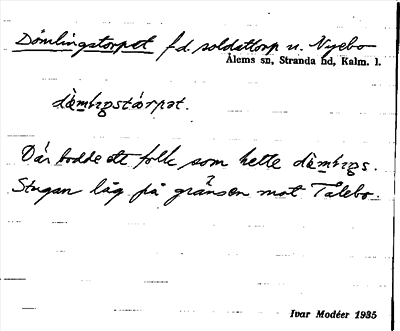 Dömlingstorpet f.d. soldattorp u. Nyebo
Ålems sn, Stranda hd, Kalm. l.
Där bodde ett folk som hette
Stugan låg på gränsen mot Talebo.
Ivar Modéer 1935